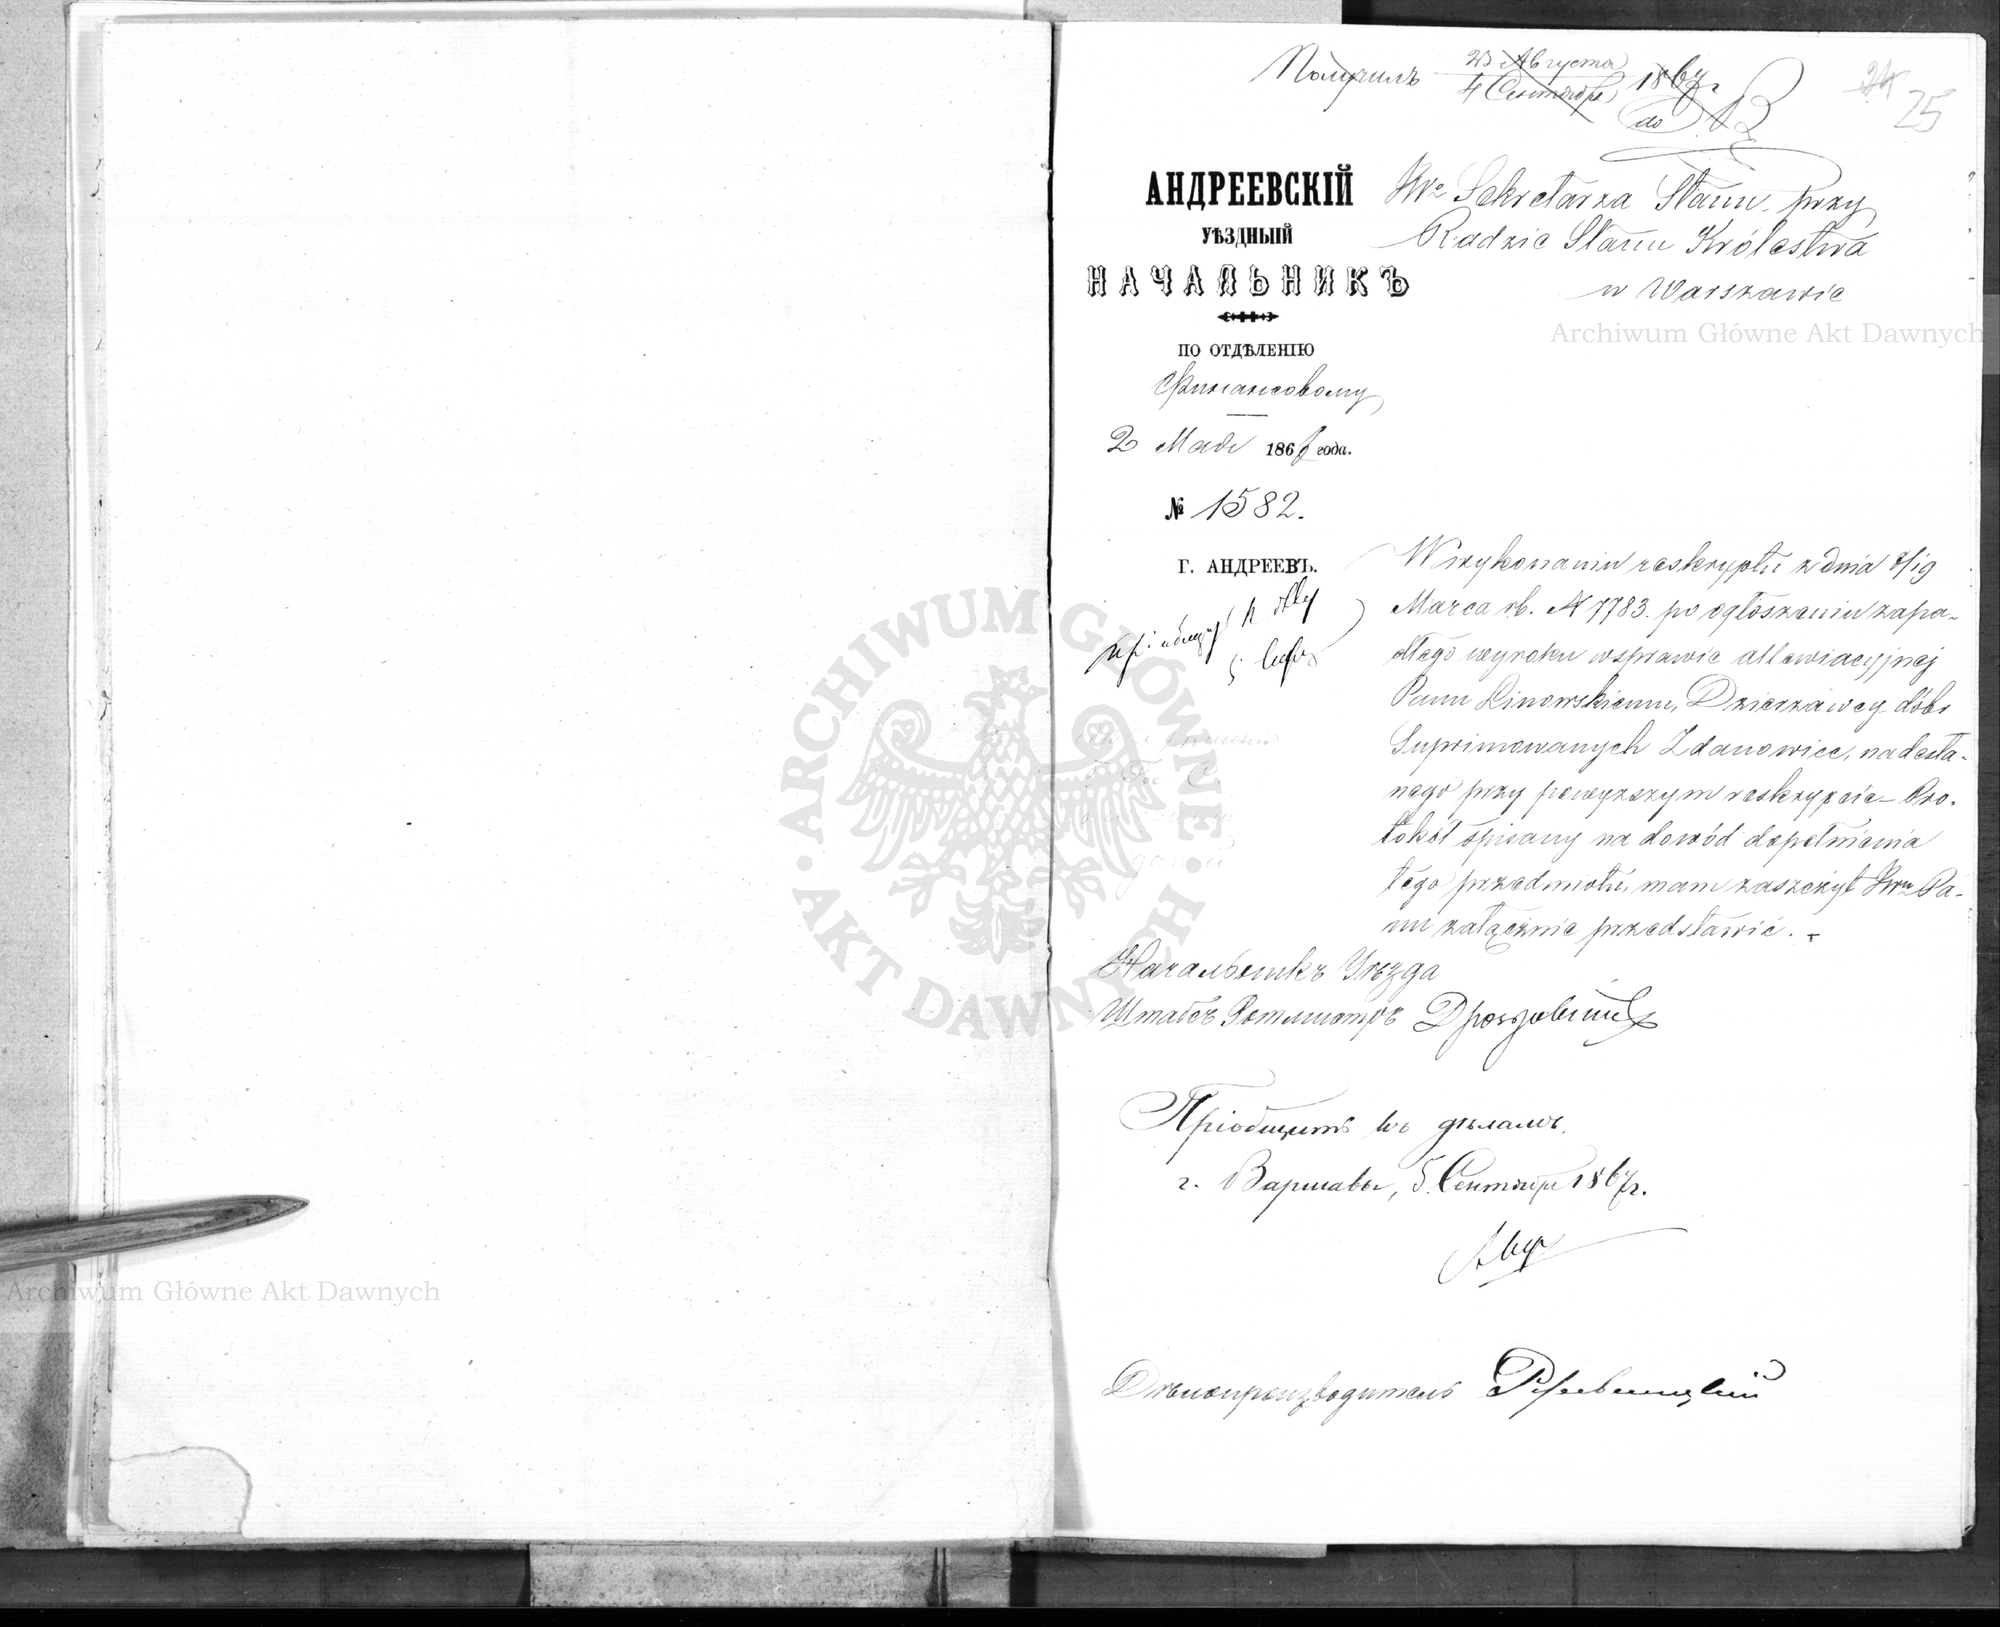 Получилъ 23 Августа
4 Сентября 1867 г
24
25
АНДРЕЕВСКІЙ
УѢЗДНЫЙ
НАЧАЛЬНИКЪ
ПО ОТДѢЛЕНІЮ
Финансовому
2 Мая 1867 года.
№ 1582.
Г. АНДРЕЕВЪ.
JWo Sekretarza Stanu przy
Radzie Stanu Królestwa
w Warszawie
W wykonaniu reskryptu z dnia 7/19
Marca rb. N 7783. po ogłoszeniu zapa-
dłego wyroku w sprawie allewiacyjnej
Panu Linowskiemu, Dzierżawcy dóbr
Suprimowanych Zdanowice, nadesła-
nego przy powyższym reskrypcie – Pro-
tokół spisany na dowód dopełnienia
tego przedmiotu, mam zaszczyt JWu Pa-
nu załącznie przedstawić.
Начальникъ Уѣзда
Штабсъ Ротмистръ
Пріобщить къ дѣламъ.
г. Варшава, 5 Сентября 1867 г.
Дѣлопроизводитель
Archiwum Główne Akt Dawnych
ARCHIWUM GŁÓWNE · AKT DAWNYCH ·
Archiwum Główne Akt Dawnych